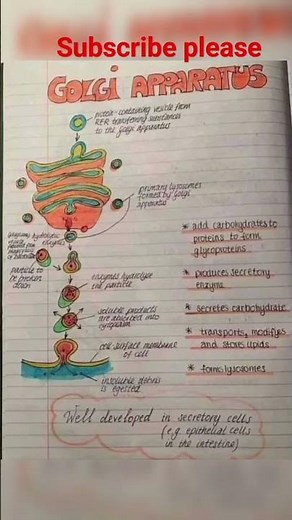 Subscribe please
GOLGI APPARATUS
protein-containing vesicle from
RER transferring substances
to the Golgi Apparatus
primary lysosomes
formed by golgi
apparatus
hydrolytic
enzymes
particle to
be broken
down
enzymes hydrolyse
the particle
soluble products
are absorbed into
cytoplasm
cell-surface membrane
of cell
insoluble debris
is egested
* add carbohydrates to
proteins to form
glycoproteins
* produces secretory
enzyms
* secretes carbohydrate
* transports, modifys
and stores lipids
* forms lysosomes
Well developed in secretory cells
(e.g. epithelial cells
in the intestine)